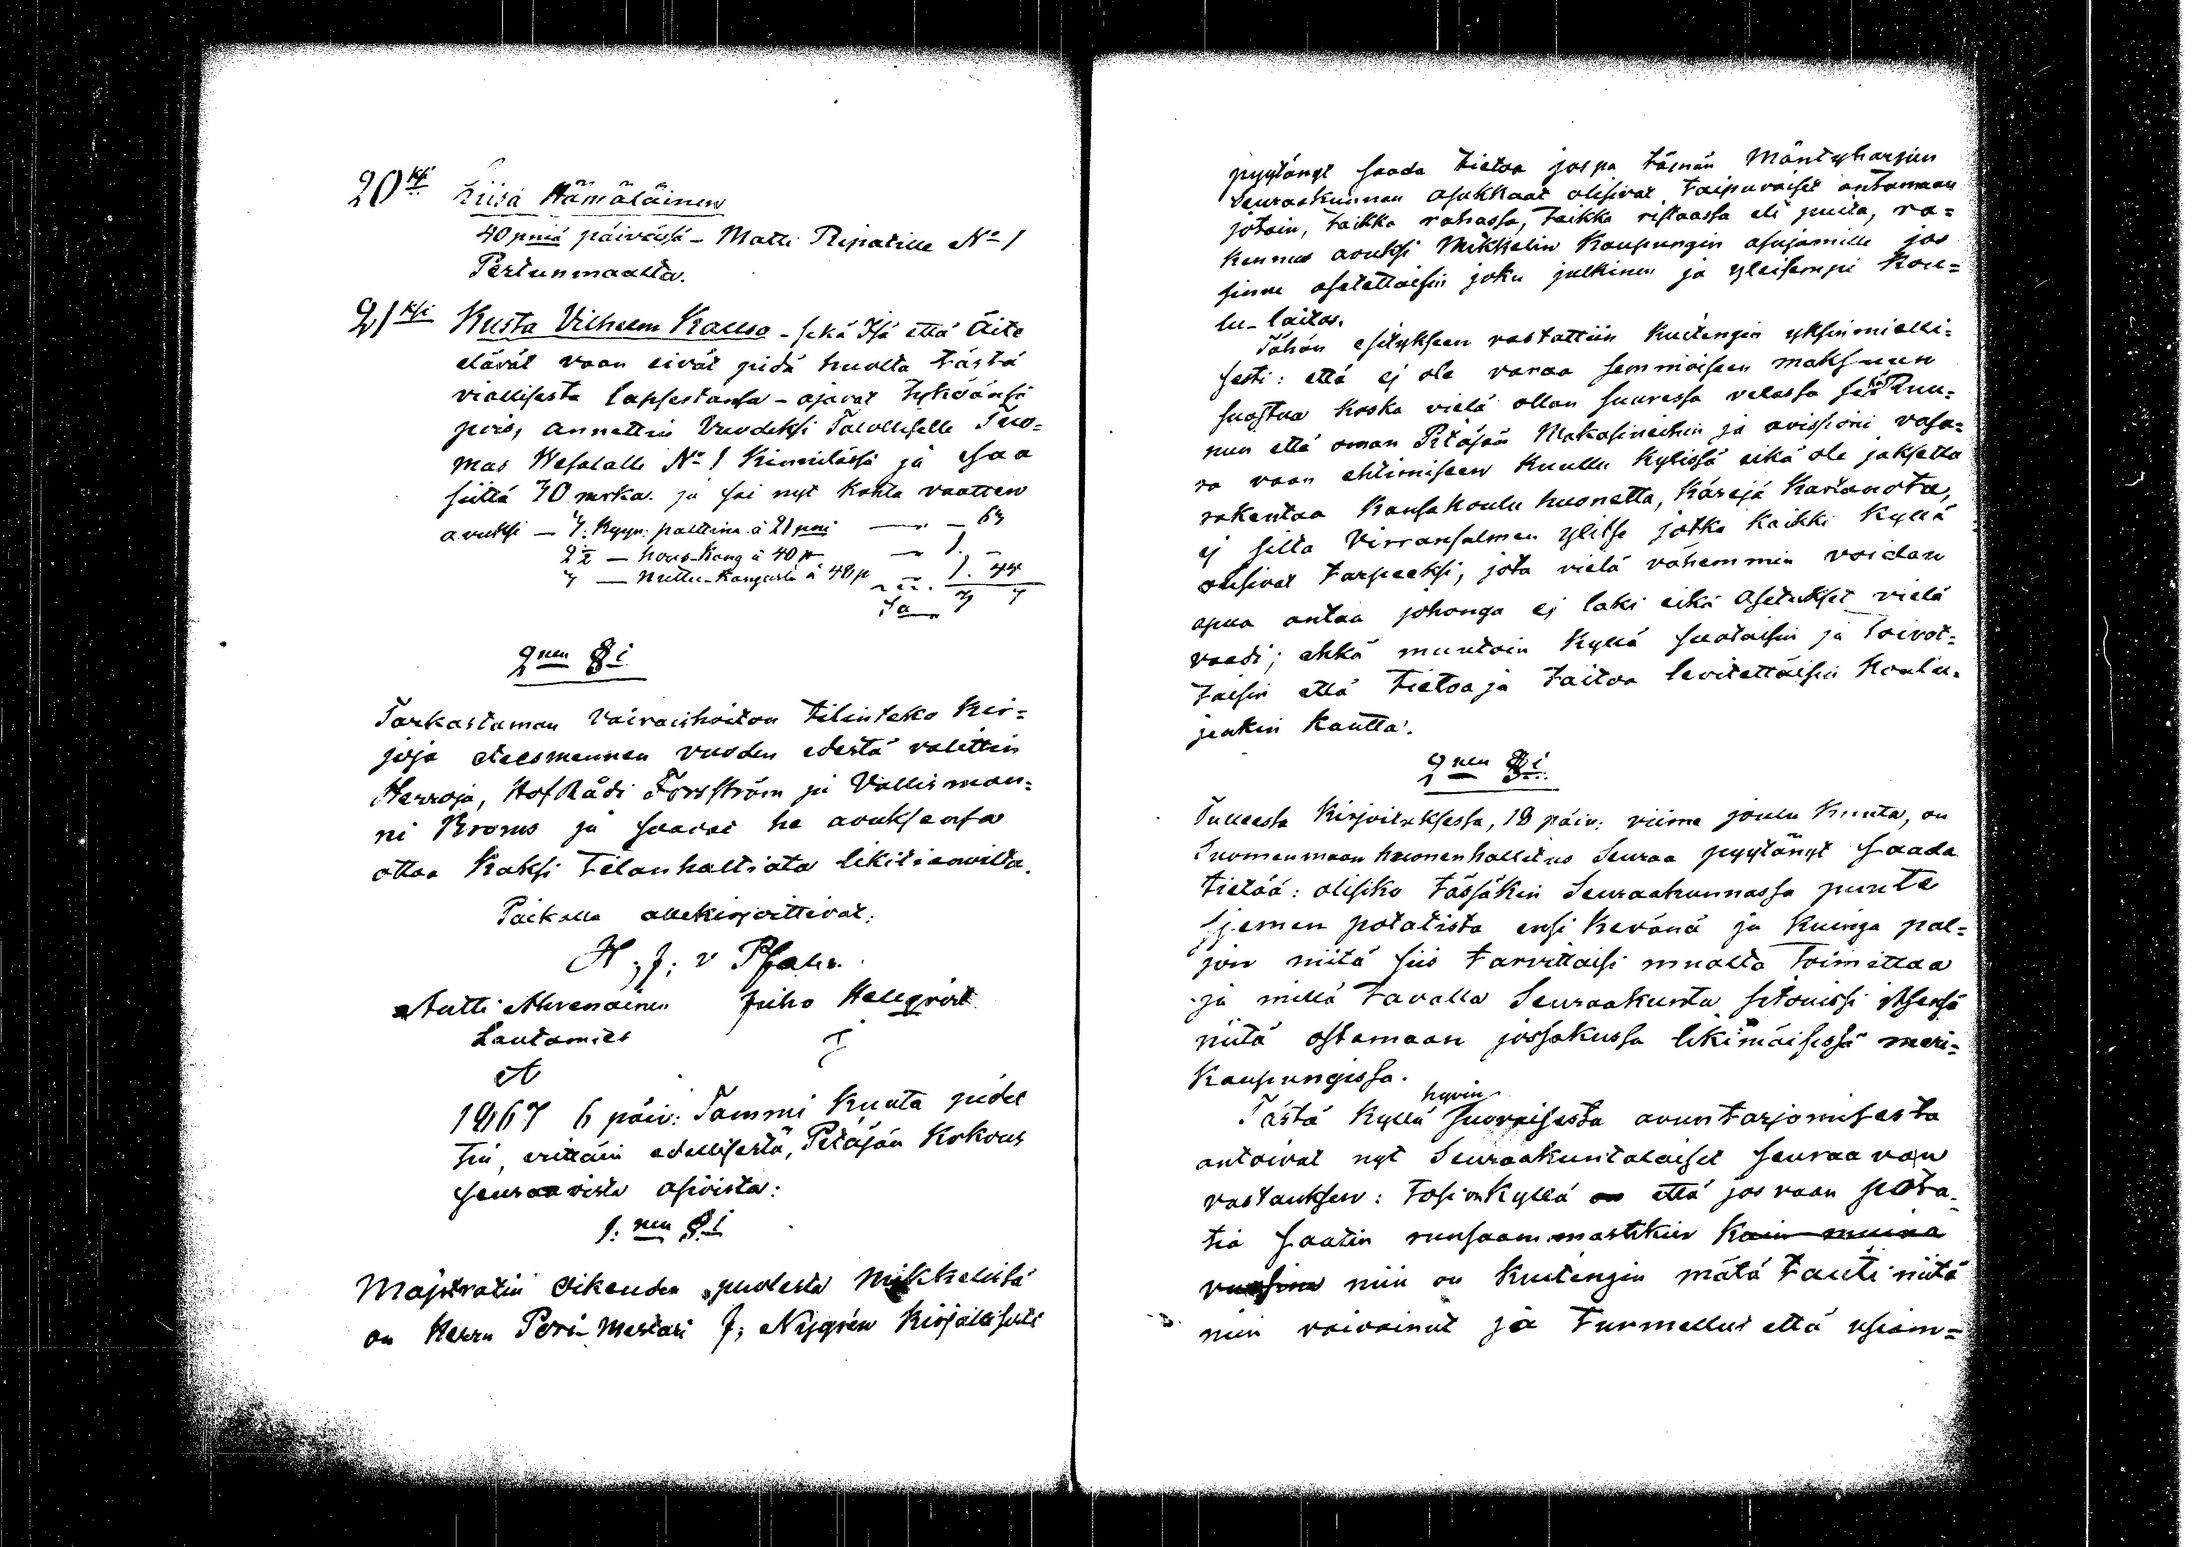 20ksi Liisa Hämäläinen
40 pniä päivässä - Matti Ripatille No 1
Pertunmaalta.
21ksi Kusta Vilhelm Kauso - sekä Isä että Äite
elävät vaan eivät pidä huolta tästä
viallisesta lapsestansa - ajavat tyköänsä
pois, annettin Vuodeksi Talolliselle Tuo=
mas Wesalalle No 1 Kinnilässä ja saa
siittä 70 mrka. ja sai nyt kohta vaatten
avuksi — 3. kyyn: palttina à 21 pni — „ — 63
2½ — hous-kang à 40 p — „ 1. „ —
3 — nuttu-kangasta à 48 p — „ 1. 44
Sa 3 7
2nen §i
Tarkastaman Vaivaishoiton tilinteko kir=
joja edesmennen vuoden edestä valittin
Herroja, HofRådi Forsström ja Vallisman=
ni Kroms ja saavat he avuksensa
ottaa kaksi Tilanhaltiata likitienoilta.
Paikalla allekirjoittivat:
H. J. v Pfaler.
Antti Ahvenainen Juho Hellqvist
Lautamies
A
1867 6 päiv: Tammi kuuta pidet
tin, erittäin edellisestä, Pitäjän Kokous
seuraavista asioista:
1. nen §i
Majstratin oikeuden puolesta Mikkelissä
on Herra Pori-Mestari J; Nygrén kirjallisesti
pyytänyt saada tietoa jospa tämän Mäntyharjun
Seurakunnan asukkaat olisivat taipuvaiset antamaan
jotain, taikka rahassa, taikka riistaassa eli puita, ra=
kennus avuksi Mikkelin kaupungin asujamille jos
sinne asetettaisiin joku julkinen ja yleisempi kou=
lu-laitos.
Tähän esitykseen vastattiin kuitengin yksinmieli=
sesti: että ej ole varaa semmoiseen maksuun
suostua koska vielä ollan suuressa velassa sekä Ruu=
nun että oman Pitäjän Makasineihin ja avissioni vasa=
ra vaan ehtimiseen kuullu kylissä eikä ole jaksettu
rakentaa kansakoulu huonetta, Käräjä kartanota,
ej silta Virransalmen ylitse jotka kaikki kyllä
olisivat tarpeeksi, jota vielä vähemmin voidan
apua antaa johonga ej laki eikä Asetukset vielä
vaadi; ehkä muutoin kyllä suotaisin ja toivot=
taisin että tietoa ja taitoa levitettäisiin koulu=
jenkin kautta.
2nen §i
Tulleesta kirjoituksessa, 18 päiv: viime joulu kuuta, on
Suomenmaan huonenhallitus Seuraa pyytänyt saada
tietää: olisiko tässäkin Seurakunnassa puute
sjemen potatista ensi kevänä ja kuinga pal=
jon niitä siis tarvittaisi muolta toimittaa
ja millä tavalla Seurakunta sitouissi itsensä
niitä ostamaan jossakussa likimäisessä meri=
kaupungissa.
hyvin
Tästä kyllä suovaisesta avuntarjomisesta
antoivat nyt Seurakuntalaiset seuraavan
vastauksen: tosi on kyllä on että jos vaan pota=
tia saatin runsaammastikin kain muina
vuosina niin on kuitengin mätä tauti niitä
niin vaivainut ja turmellut että usiam=